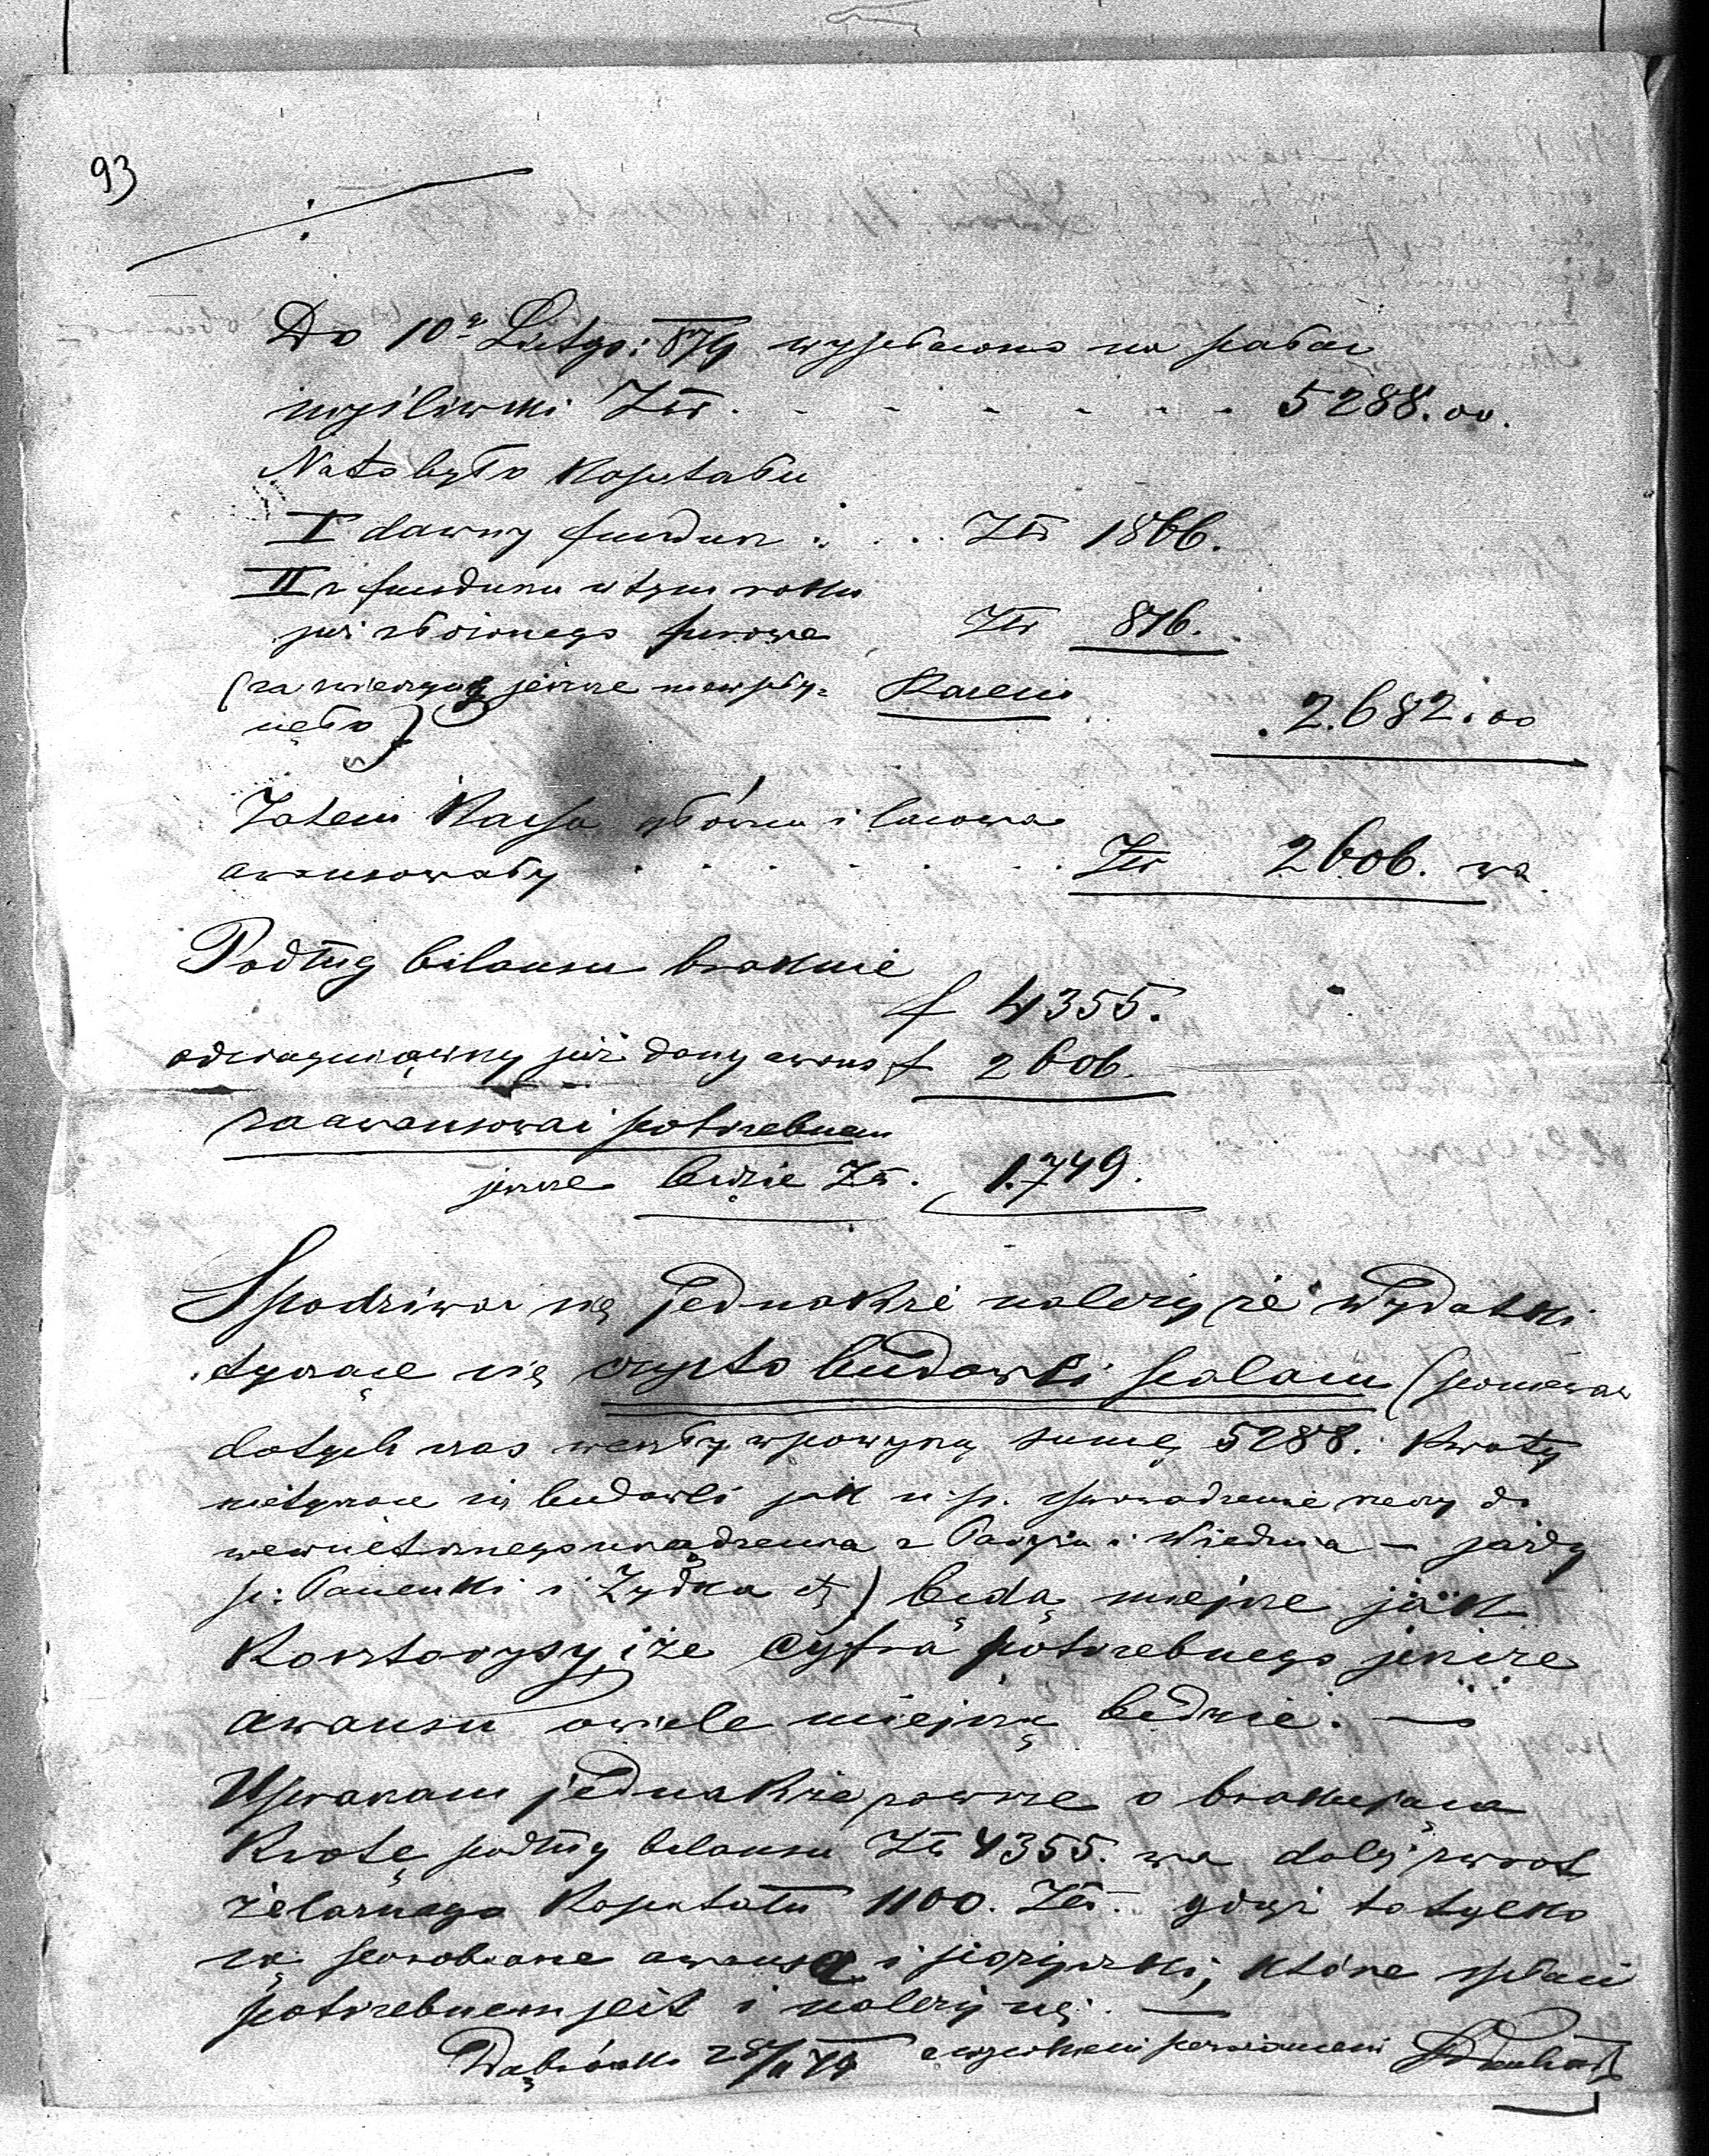 93
Do 10º Listop: 879 wypłacono na pałac
myśliwski Złr. . . . . . . . 5288.00.
Na to było Kapitału
I dawny fundusz . . . Złr 1866.
II z funduszu w tym roku
już złożonego Złr 816.
(za zwierzynę jeszcze niewpły= Razem 2.682.00
nęło)
Zatem Kassa główna i lasowa
awansowały . . . . . . Złr 2606. wa.
Podług bilansu braknie
f 4355.
odciągnąwszy już dany awans f 2606.
zaawansować potrzebnem
jeszcze będzie Złr. 1.749.
Spodziwać się jednakże należy że wydatki
tyczące się czysto budowli pałacu (ponieważ
dotych czas weszły w powyższą sumę 5288. Kwoty
nietyczące się budowli jak n.p. sprowadzenie rzeczy do
wewnetrznego urządzenia z Paryża i Wiednia – jazdy
p: Panenki i Żydka etc) będą mniejsze jak
Kosztorysy, i że cyfra potrzebnego jeszcze
awansu o wiele miejszą bedzie. —
Upraszam jednakże zawsze o brakującą
Kwotę podług bilansu Złr 4355. wa dalej zwrot
żelaznego Kapitału 1100. Złr. gdyż to tylko
są porobione awansa i pożyczki, które spłacić
potrzebnem jest i należy się. —
Dąbrówka 28/11 79 z wysokiem poważaniem